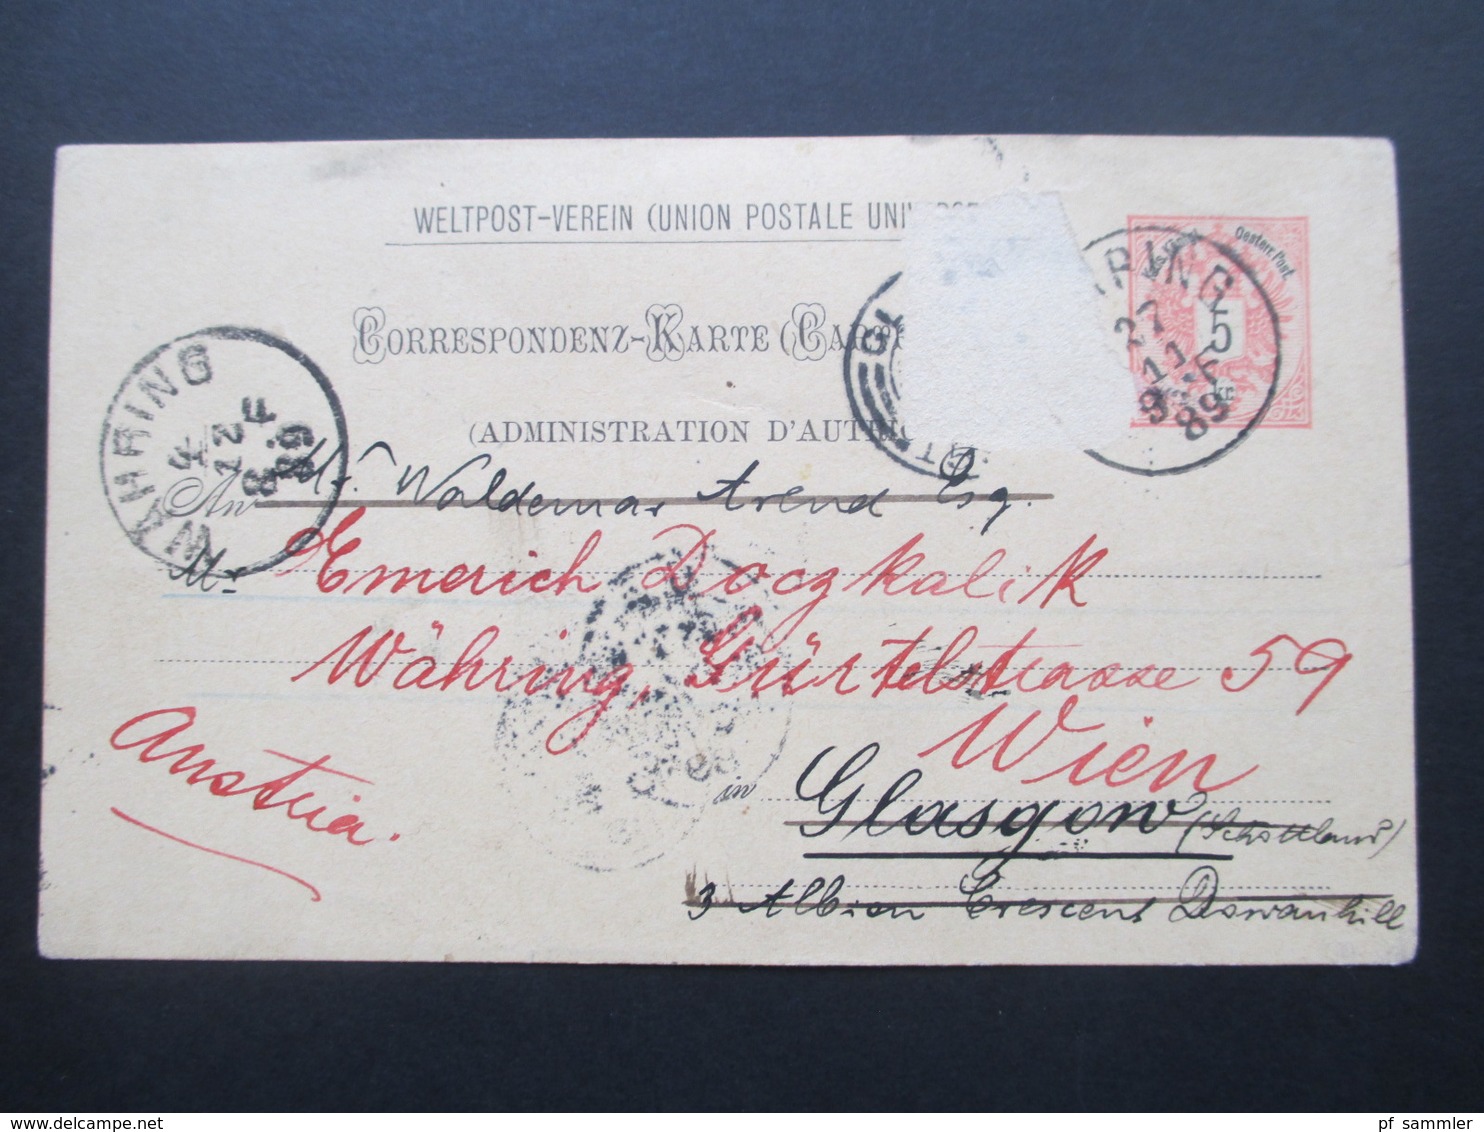 WELTPOST-VEREIN (UNION POSTALE
CORRESPONDENZ-KARTE
(ADMINISTRATION
Oesterr. Post.
5
kr
RING
27
11
9 F
89
WÄHRING
4
12
8. F
89
An
Mr. Waldemar Arend Esq.
Mr Emerich Doczkalik
Währing, Gürtelstrasse 59
Wien
Austria.
in
Glasgow (Schottland)
3 Albion Crescent Dowanhill
pf_sammler